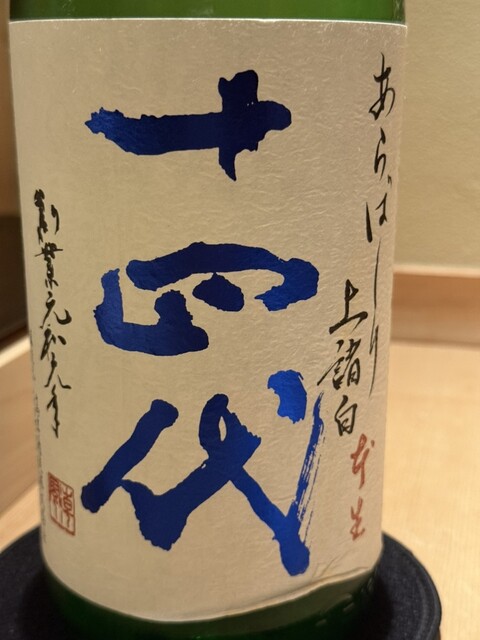 あらばしり
上諸白
本生
十四代
創業元和元年